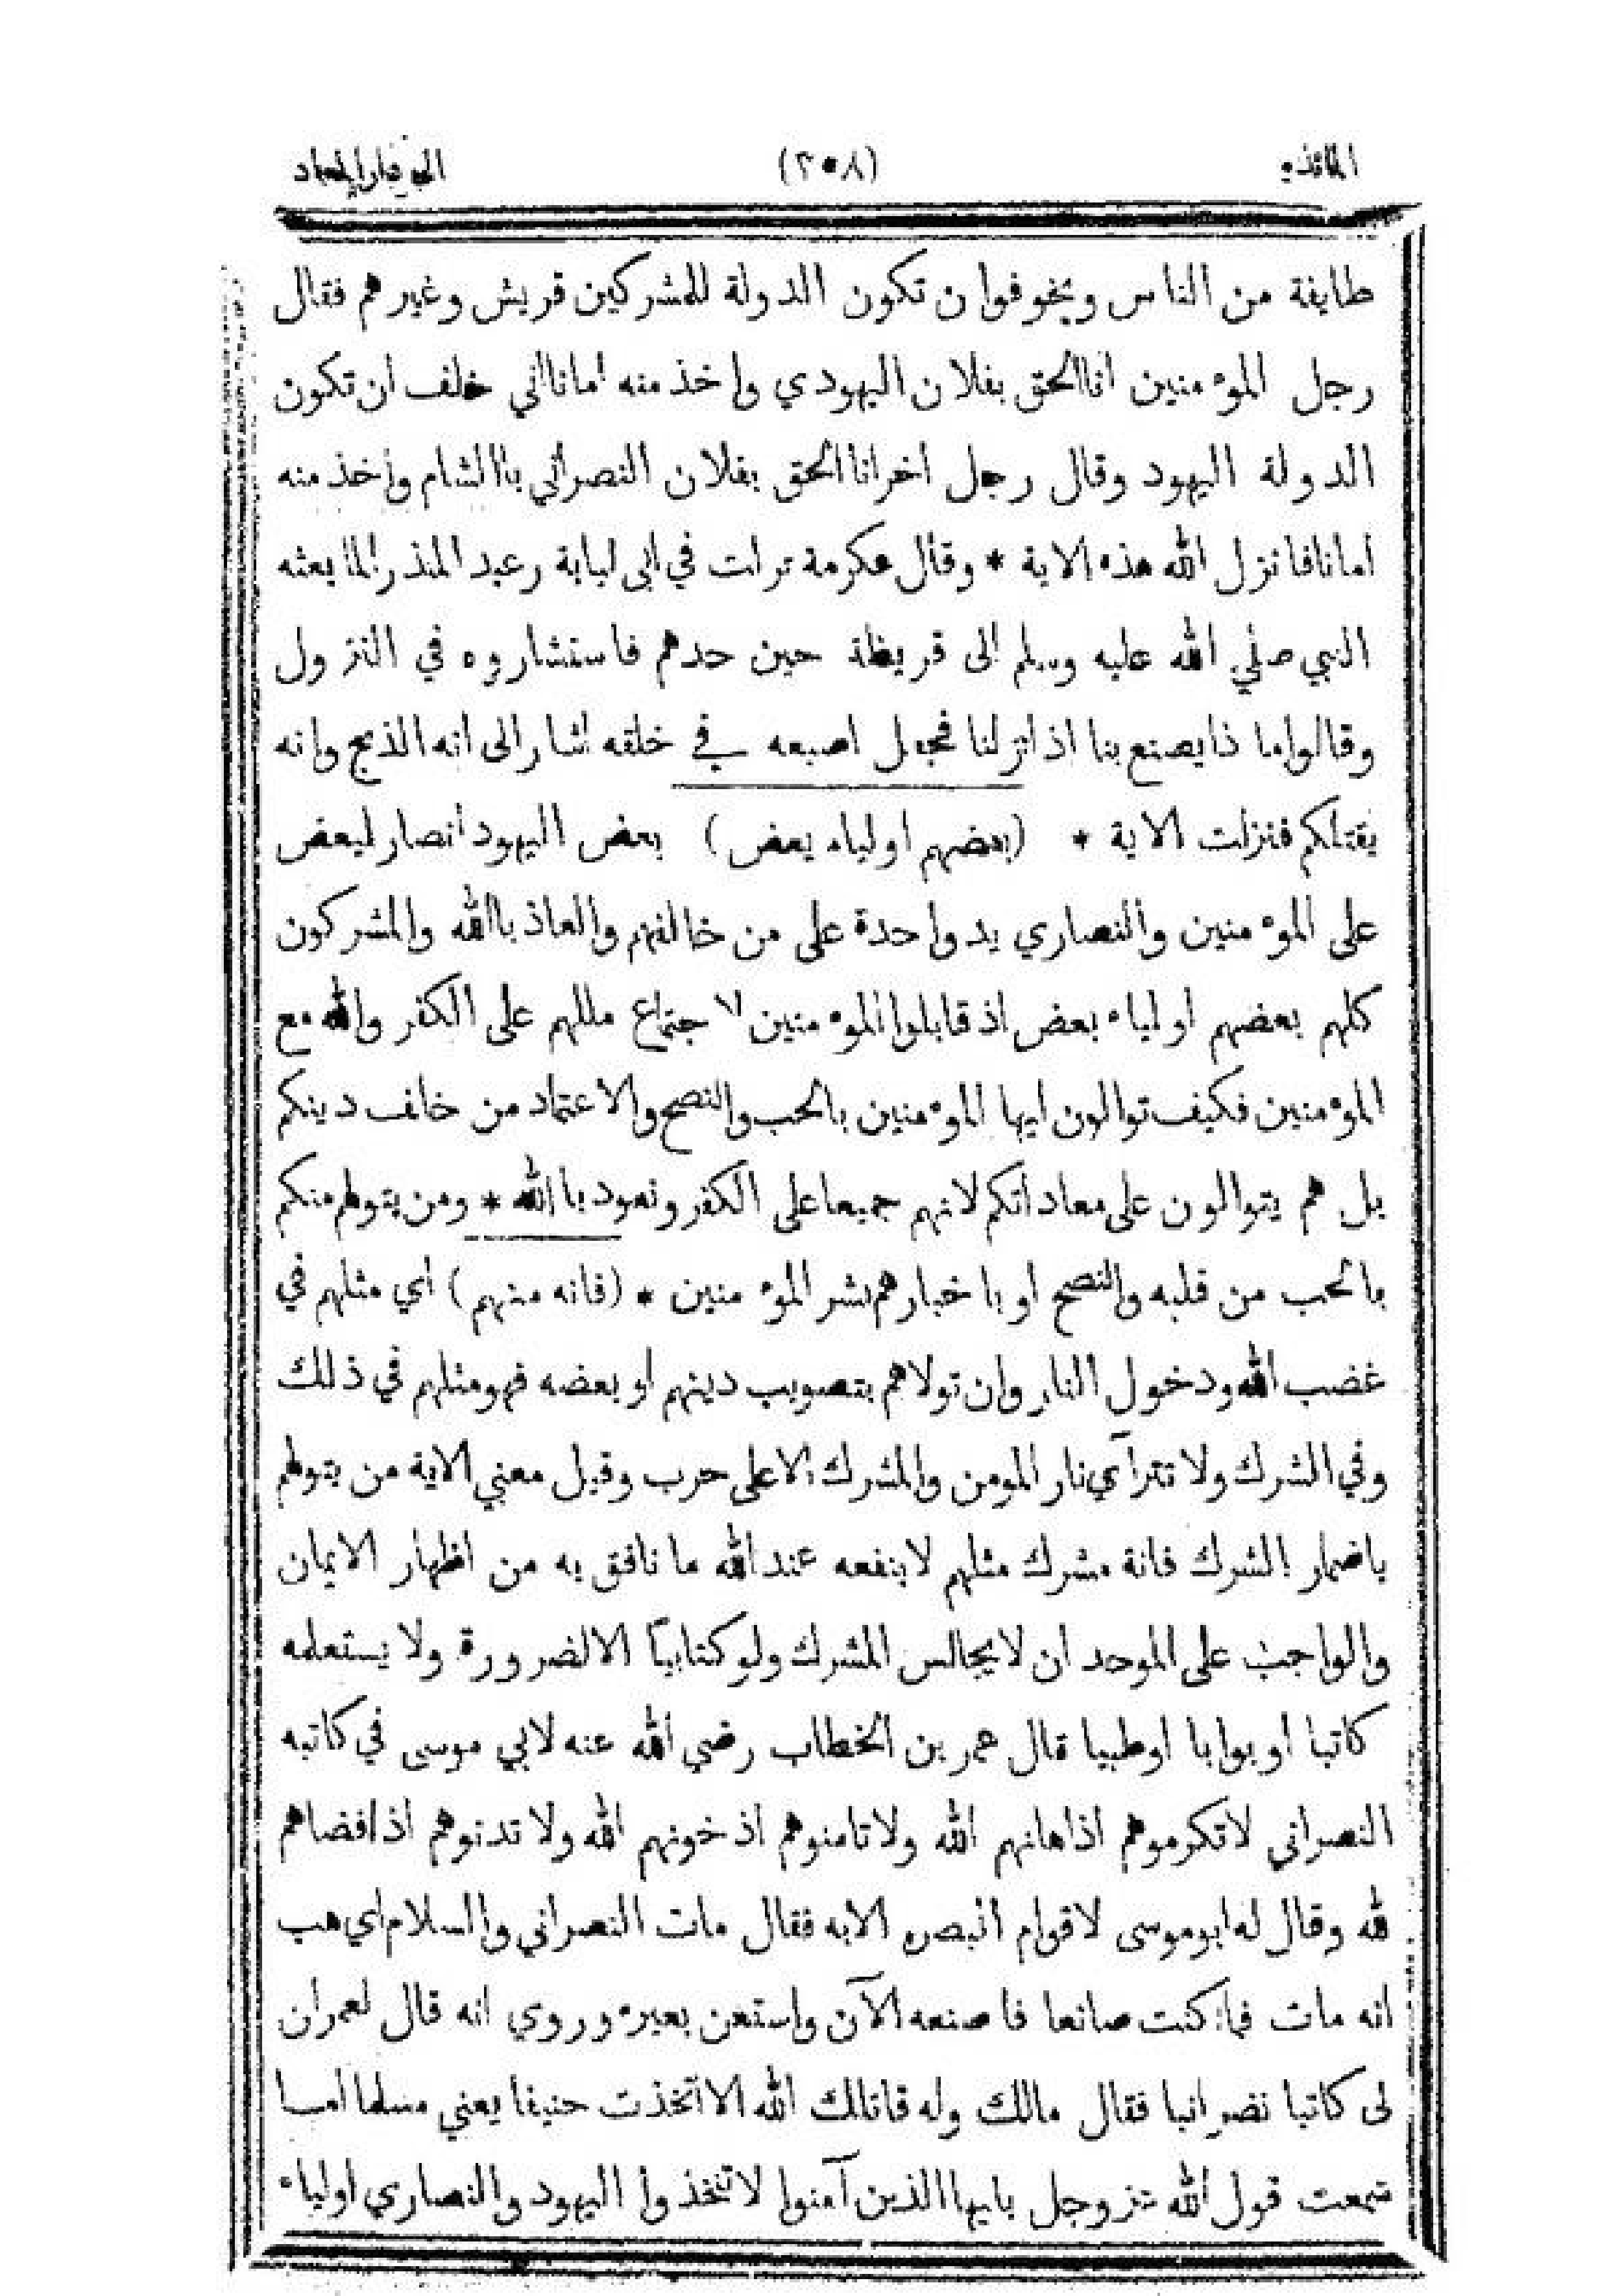 المائدة (٣٠٨) الى دار المعاد
طايفة من الناس ويخوفوا ن تكون الدولة للمشركين قريش وغيرهم فقال
رجل المؤمنين اناالحق بفلان اليهودي واخذ منه امانااني خاف ان تكون
الدولة اليهود وقال رجل اخراناالحق بفلان النصراني باالشام وأخذ منه
امانافانزل الله هذه الاية * وقال عكرمة نزلت في ابى لبابة رعبد المنذر لما بعثه
النبي صلي الله عليه وسلم الى قريظة حين حدهم فاستشاروه في النزول
وقالواما ذايصنع بنا اذانزلنا فجعل اصبعه في خلقه اشارالى انه الذبح وانه
يقتلكم فنزلت الاية * (بعضهم اولياء بعض) بعض اليهود انصار لبعض
على المؤمنين والنصاري يد واحدة على من خالفهم والعاذ باالله والمشركون
كلهم بعضهم اولياء بعض اذ قابلوا المؤمنين لا جتماع مللهم على الكفر والله مع
المؤمنين فكيف توالون ايها المؤمنين بالحب والنصح والاعتماد من خالف دينكم
بل هم يتوالون على معاداتكم لانهم جميعاعلى الكفر ونعود باالله * ومن يتولهم منكم
بالحب من قلبه والنصح او با خبارهم بشر المؤمنين * (فانه منهم) اي مثلهم في
غضب الله ودخول النار وان تولاهم بتصويب دينهم او بعضه فهومثلهم في ذلك
وفي الشرك ولا تترآي نار المومن والمشرك الاعلى حرب وقيل معني الاية من يتولهم
باضمار الشرك فانة مشرك مثلهم لاينفعه عند الله ما نافق به من اظهار الايمان
والواجب على الموحد ان لايجالس المشرك ولوكتابيًا الالضرورة ولا يستعلمه
كاتبا اوبوابا اوطبيا قال عمر بن الخطاب رضي الله عنه لابي موسى في كاتبه
النصراني لاتكرموهم اذاهانهم الله ولاتامنوهم اذ خونهم الله ولا تدنوهم اذاقضاهم
لله وقال له ابوموسى لاقوام البصره الابه فقال مات النصراني والسلام اي هب
انه مات فماكنت صانعا فاصنعه الآن واستعن بعيره وروي انه قال لعمران
لى كاتبا نضرانيا فقال مالك وله قاتالك الله الااتخذت حنيفا يعني مسلما امسا
سمعت قول الله عز وجل يايهاالذين آمنوا لاتتخذوا اليهود والنصاري اولياء